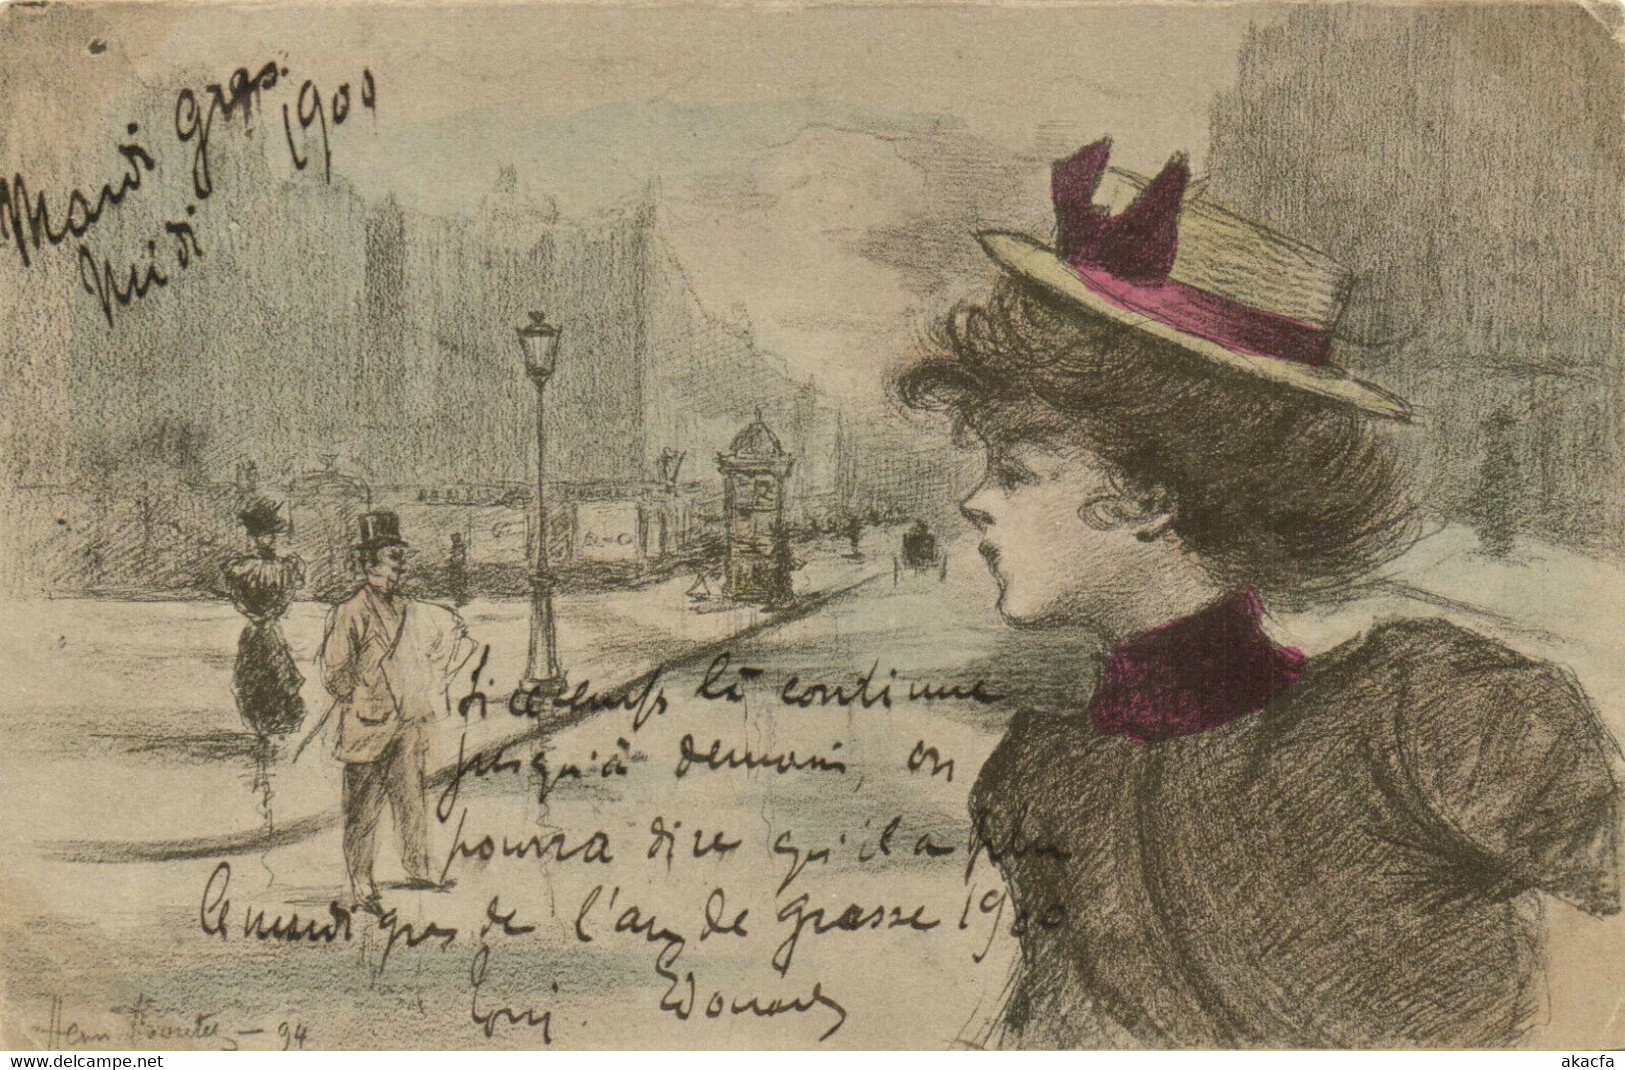 Mardi gras.
Midi 1900
Si ce temps là continue
jusqu'à demain, on
pourra dire qu'il a plu
le mardi gras de l'an de grasse 1900
Edouard
Henri Boutet - 94
akacfa